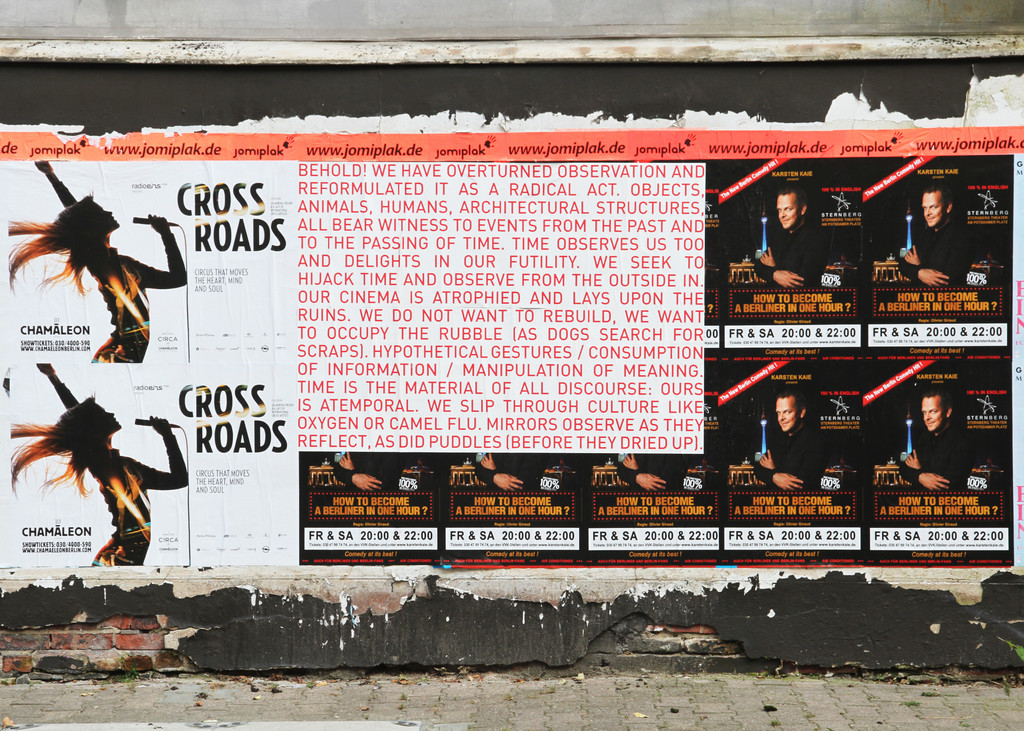 de jomiplak www.jomiplak.de jomiplak www.jomiplak.de jomiplak www.jomiplak.de jomiplak www.jomiplak.de jomiplak www.jomiplak.
radioeins
CROSS
ROADS
CIRCUS THAT MOVES
THE HEART, MIND
AND SOUL
CHAMÄLEON
SHOWTICKETS: 030 / 4000-590
WWW.CHAMAELEONBERLIN.COM
CIRCA
radioeins
CROSS
ROADS
CIRCUS THAT MOVES
THE HEART, MIND
AND SOUL
CHAMÄLEON
SHOWTICKETS: 030 / 4000-590
WWW.CHAMAELEONBERLIN.COM
CIRCA
BEHOLD! WE HAVE OVERTURNED OBSERVATION AND
REFORMULATED IT AS A RADICAL ACT. OBJECTS,
ANIMALS, HUMANS, ARCHITECTURAL STRUCTURES,
ALL BEAR WITNESS TO EVENTS FROM THE PAST AND
TO THE PASSING OF TIME. TIME OBSERVES US TOO
AND DELIGHTS IN OUR FUTILITY. WE SEEK TO
HIJACK TIME AND OBSERVE FROM THE OUTSIDE IN.
OUR CINEMA IS ATROPHIED AND LAYS UPON THE
RUINS. WE DO NOT WANT TO REBUILD, WE WANT
TO OCCUPY THE RUBBLE (AS DOGS SEARCH FOR
SCRAPS). HYPOTHETICAL GESTURES / CONSUMPTION
OF INFORMATION / MANIPULATION OF MEANING.
TIME IS THE MATERIAL OF ALL DISCOURSE: OURS
IS ATEMPORAL. WE SLIP THROUGH CULTURE LIKE
OXYGEN OR CAMEL FLU. MIRRORS OBSERVE AS THEY
REFLECT, AS DID PUDDLES (BEFORE THEY DRIED UP).
The New Berlin Comedy Hit!
KARSTEN KAIE
100 % IN ENGLISH
STERNBERG
STERNBERG THEATER
AM POTSDAMER PLATZ
100%
HOW TO BECOME
A BERLINER IN ONE HOUR ?
Regie: Olivier Giraud
FR & SA 20:00 & 22:00
Comedy at its best !
The New Berlin Comedy Hit!
KARSTEN KAIE
100 % IN ENGLISH
STERNBERG
STERNBERG THEATER
AM POTSDAMER PLATZ
100%
HOW TO BECOME
A BERLINER IN ONE HOUR ?
Regie: Olivier Giraud
FR & SA 20:00 & 22:00
Comedy at its best !
The New Berlin Comedy Hit!
KARSTEN KAIE
100 % IN ENGLISH
STERNBERG
STERNBERG THEATER
AM POTSDAMER PLATZ
100%
HOW TO BECOME
A BERLINER IN ONE HOUR ?
Regie: Olivier Giraud
FR & SA 20:00 & 22:00
Comedy at its best !
The New Berlin Comedy Hit!
KARSTEN KAIE
100 % IN ENGLISH
STERNBERG
STERNBERG THEATER
AM POTSDAMER PLATZ
100%
HOW TO BECOME
A BERLINER IN ONE HOUR ?
Regie: Olivier Giraud
FR & SA 20:00 & 22:00
Comedy at its best !
100%
HOW TO BECOME
A BERLINER IN ONE HOUR ?
Regie: Olivier Giraud
FR & SA 20:00 & 22:00
Comedy at its best !
100%
HOW TO BECOME
A BERLINER IN ONE HOUR ?
Regie: Olivier Giraud
FR & SA 20:00 & 22:00
Comedy at its best !
100%
HOW TO BECOME
A BERLINER IN ONE HOUR ?
Regie: Olivier Giraud
FR & SA 20:00 & 22:00
Comedy at its best !